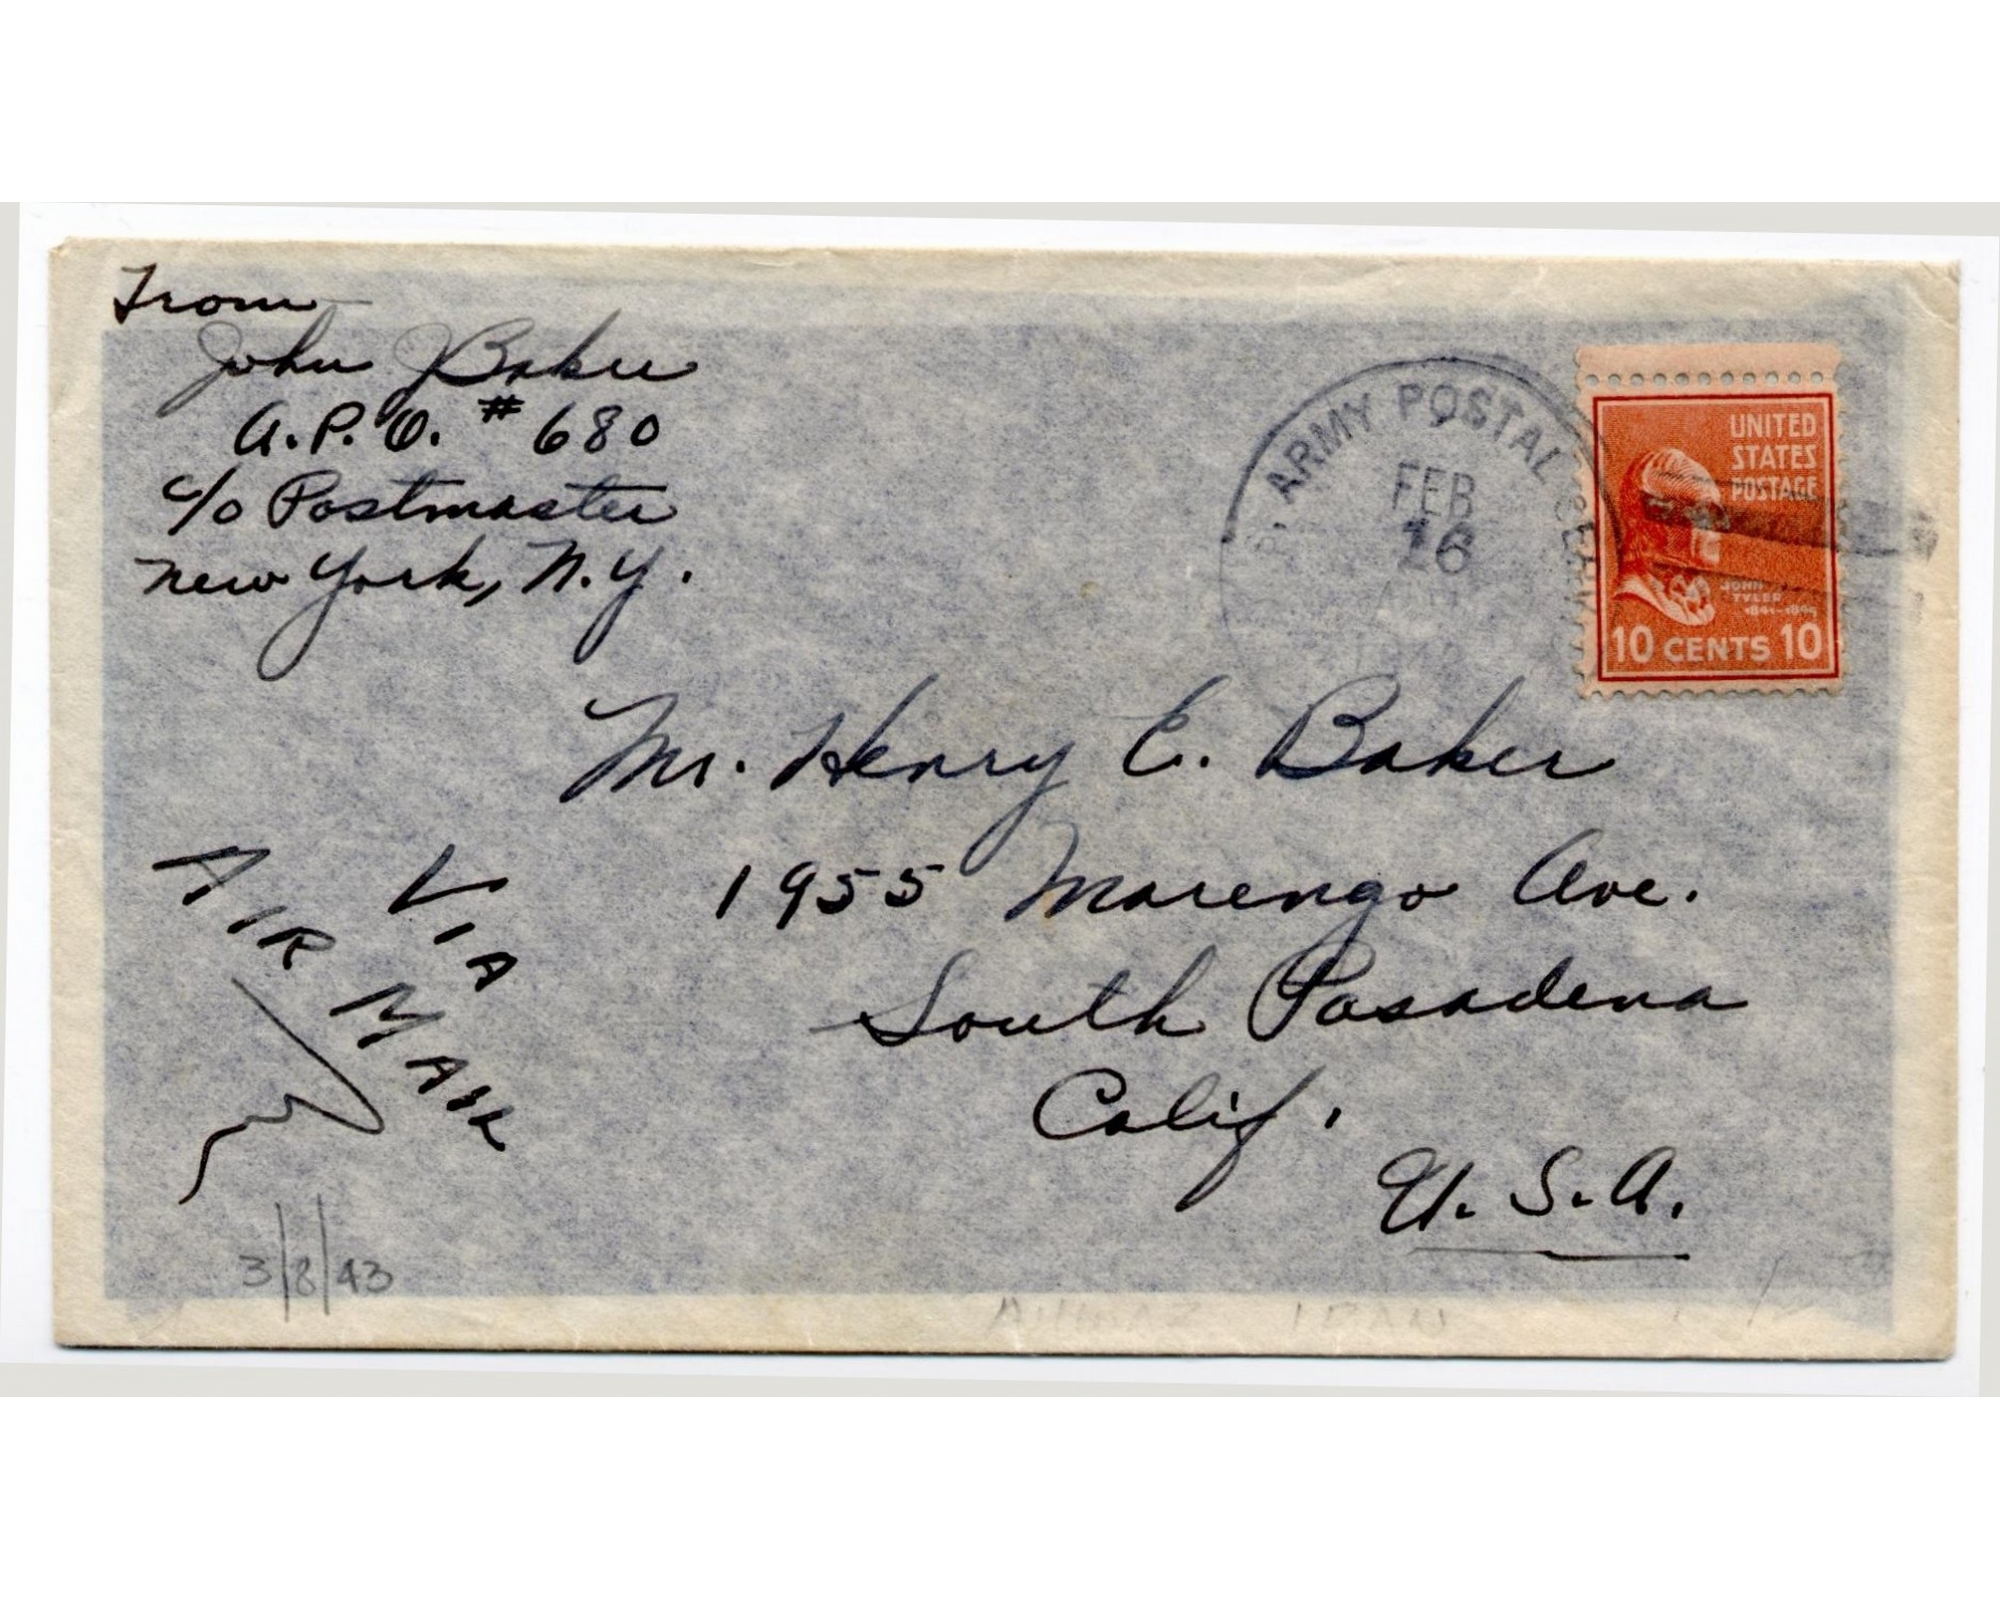 From
John J Baker
A.P.O. # 680
c/o Postmaster
New York, N.Y.
ARMY POSTAL
FEB
16
UNITED
STATES
POSTAGE
JOHN
TYLER
1841-1845
10 CENTS 10
Mr. Henry E. Baker
1955 Marengo Ave.
South Pasadena
Calif.
U.S.A.
VIA
AIR MAIL
3/8/43
AHWAZ IRAN